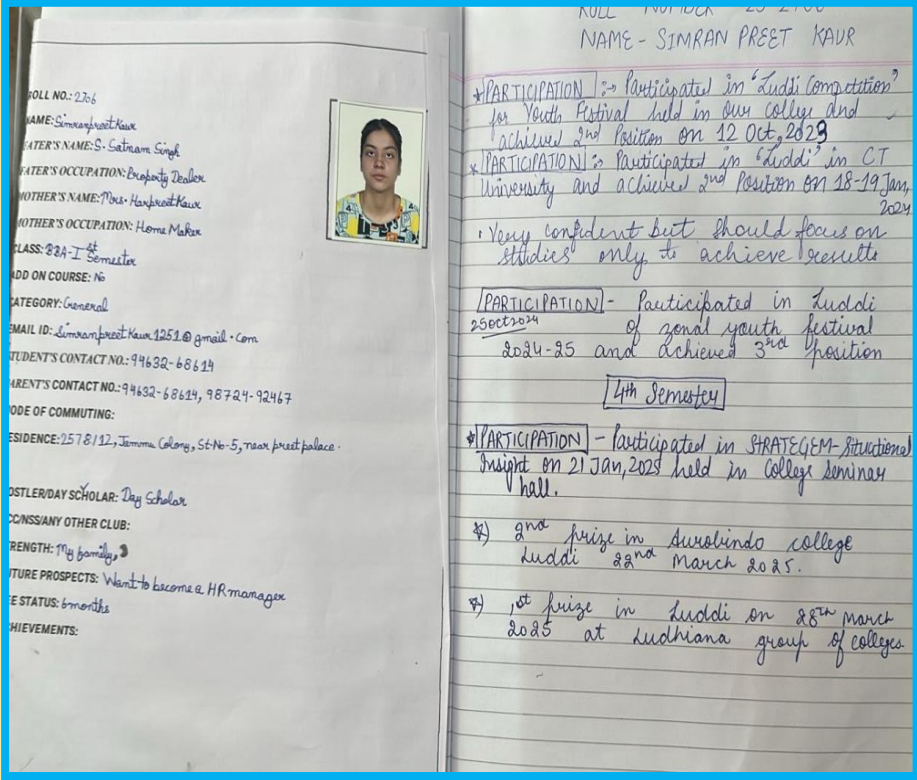 ROLL NO.: 2706
NAME: Simranpreet Kaur
FATER'S NAME: S. Satnam Singh
FATER'S OCCUPATION: Property Dealer
MOTHER'S NAME: Mrs. Harpreet Kaur
MOTHER'S OCCUPATION: Home Maker
CLASS: BBA-I St Semester
ADD ON COURSE: No
CATEGORY: General
EMAIL ID: Simranpreetkaur1251@gmail.com
STUDENT'S CONTACT NO.: 94632-68614
PARENT'S CONTACT NO.: 94632-68614, 98724-92467
MODE OF COMMUTING:
RESIDENCE: 2578/12, Jammu Colony, St-No-5, near preet palace.
HOSTLER/DAY SCHOLAR: Day Scholar
CC/NSS/ANY OTHER CLUB:
STRENGTH: My family,
FUTURE PROSPECTS: Want to become a HR manager
E STATUS: 6 months
ACHIEVEMENTS:
ROLL NUMBER
NAME- SIMRAN PREET KAUR
*PARTICIPATION :-> Participated in 'Luddi Competition'
for Youth Festival held in our college and
achieved 2nd Position on 12 Oct, 2023
*PARTICIPATION :- Participated in 'Luddi' in CT
University and achieved 2nd Position on 18-19 Jan,
2024
. Very confident but should focus on
studies only to achieve results
PARTICIPATION - Participated in Luddi
25 Oct 2024 of zonal youth festival
2024-25 and achieved 3rd position
4th Semester
*PARTICIPATION - Participated in STRATEGEM-Situational
Insight on 21 Jan, 2025 held in College Seminar
hall.
*) 2nd prize in Aurobindo college
Luddi 22nd March 2025.
*) 1st prize in Luddi on 28th March
2025 at Ludhiana group of colleges.